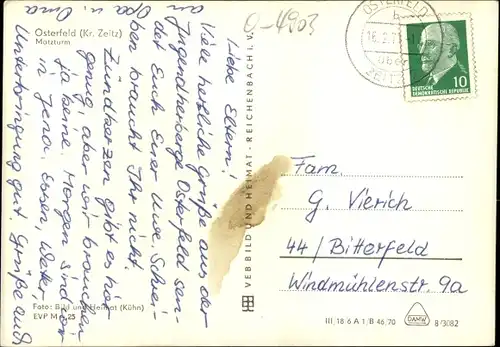 Osterfeld (Kr. Zeitz)
Motzturm
Liebe Eltern!
Viele herzliche Grüße aus der
Jugendherberge Osterfeld sen-
det Euch Euer Uwe. Schrei-
ben braucht Ihr nicht.
Zündkerzen gibt es hier
genug, aber wir brauchen
ja keine. Morgen sind wir
in Jena. Essen, Wetter,
Unterbringung gut. Grüße auch
an Opa u. Oma
Foto: Bild und Heimat (Kühn)
EVP M 0,25
VEB BILD UND HEIMAT · REICHENBACH i. V.
O-4903
OSTERFELD
b
über
ZEITZ
10
DEUTSCHE
DEMOKRATISCHE REPUBLIK
Fam.
G. Vierich
44/ Bitterfeld
Windmühlenstr. 9a
III 18 6 A 1/B 46/70
DAMW
8/3082